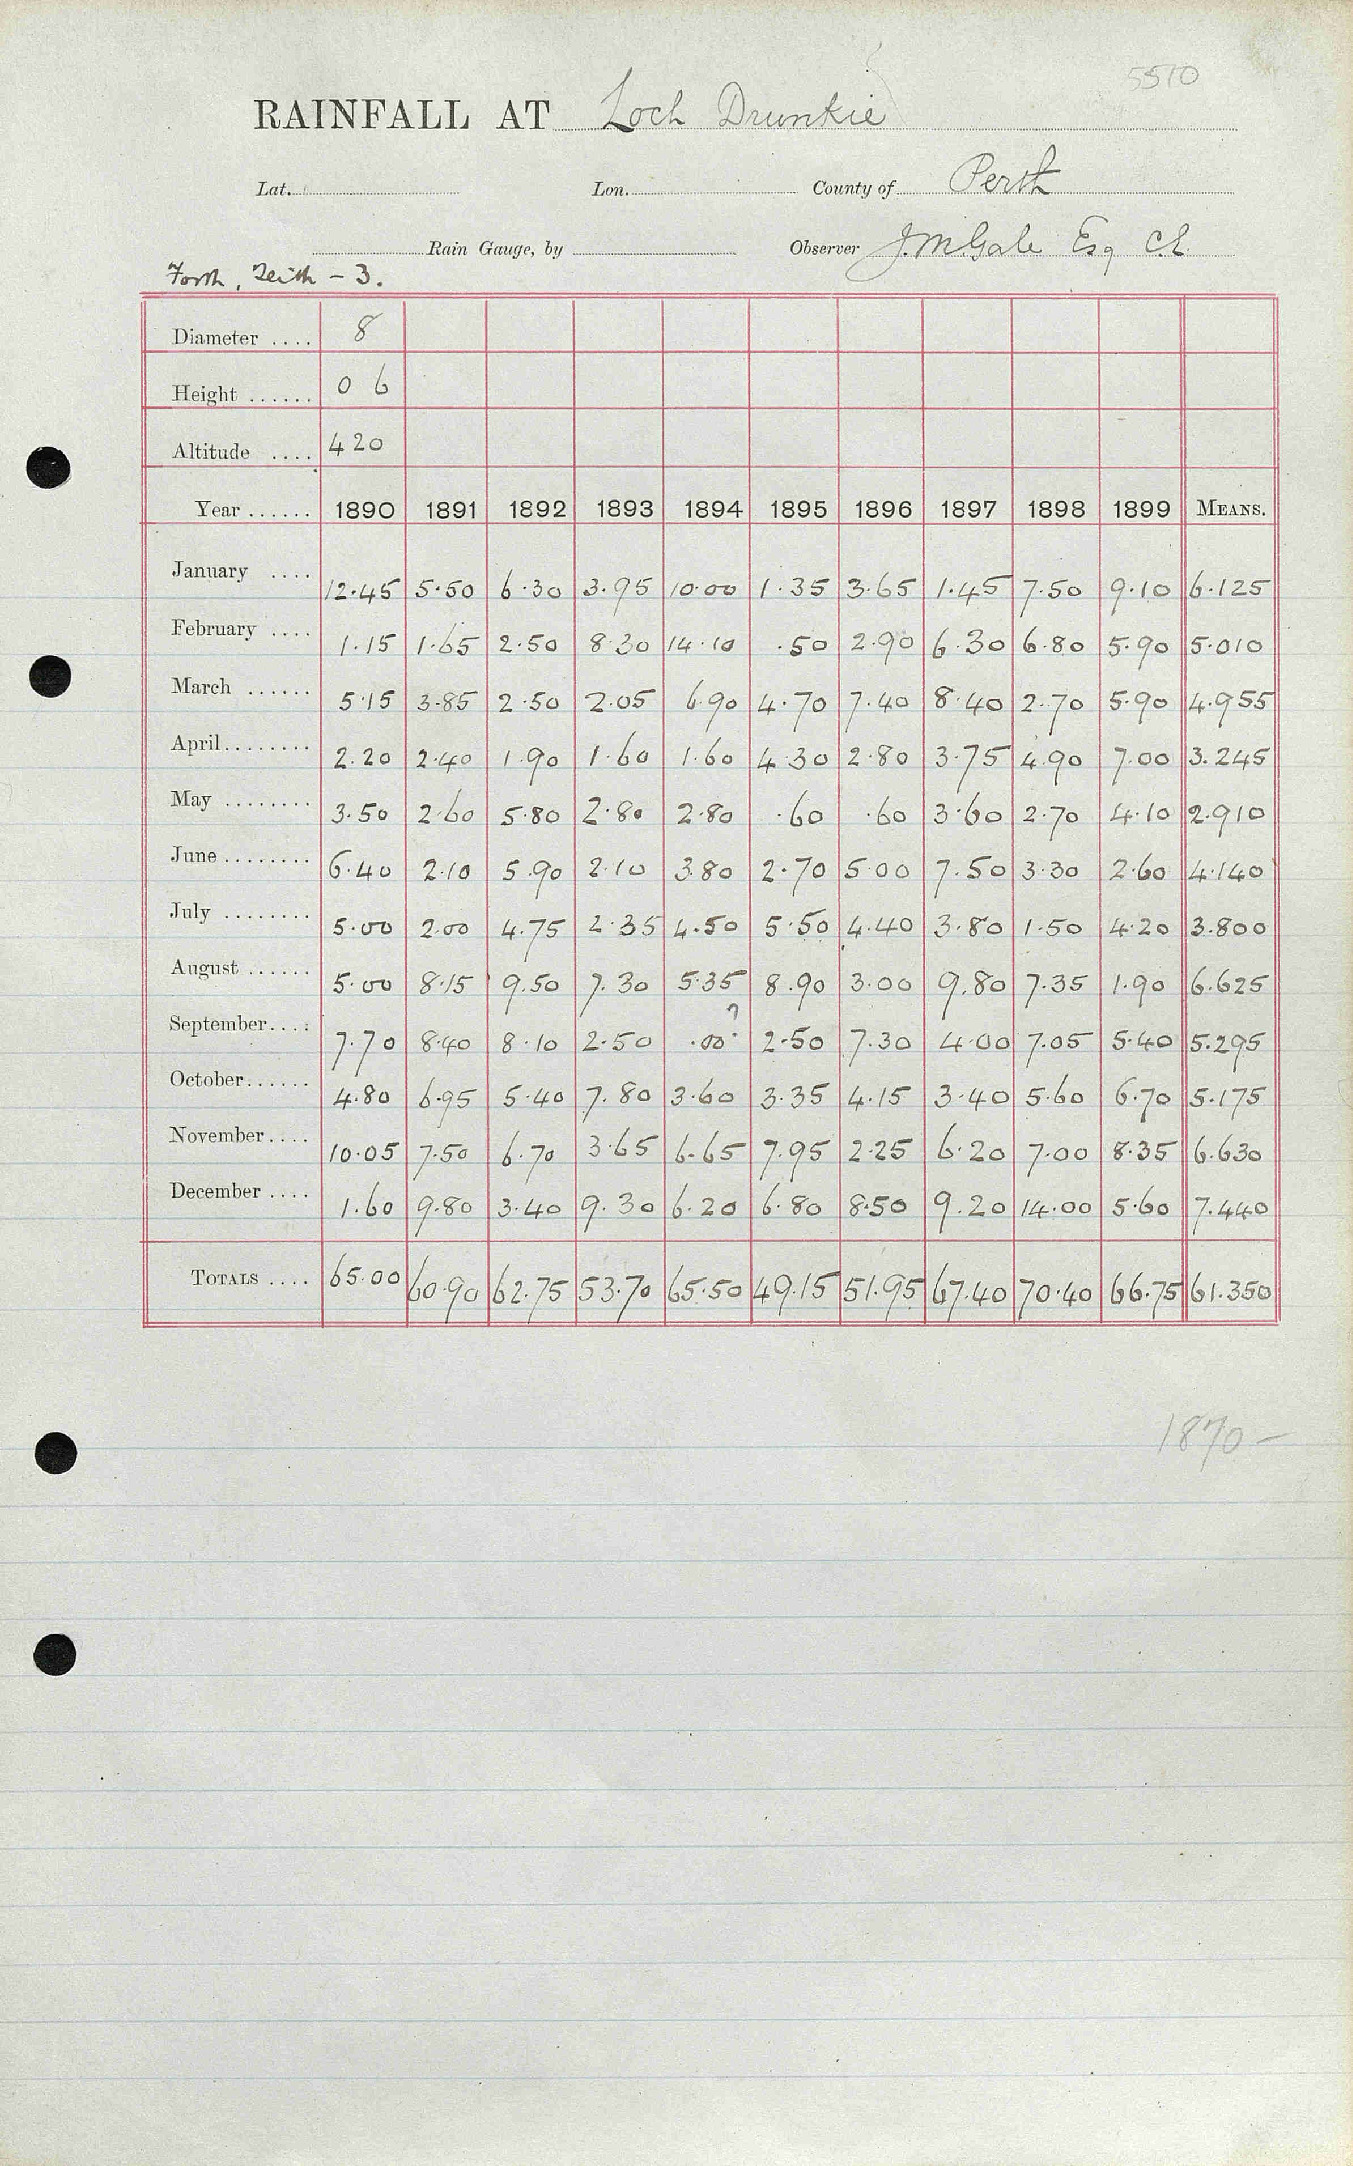 5510
RAINFALL AT Loch Drunkie
Lat. Lon. County of Perth
Rain Gauge, by Observer J. M. Gale Esq C.E.
Forth, Teith - 3.
Diameter .... 8
Height ...... 0 6
Altitude .... 420
Year ...... 1890 1891 1892 1893 1894 1895 1896 1897 1898 1899 MEANS.
January .... 12.45 5.50 6.30 3.95 10.00 1.35 3.65 1.45 7.50 9.10 6.125
February .... 1.15 1.65 2.50 8.30 14.10 .50 2.90 6.30 6.80 5.90 5.010
March ...... 5.15 3.85 2.50 2.05 6.90 4.70 7.40 8.40 2.70 5.90 4.955
April ........ 2.20 2.40 1.90 1.60 1.60 4.30 2.80 3.75 4.90 7.00 3.245
May ........ 3.50 2.60 5.80 2.80 2.80 .60 .60 3.60 2.70 4.10 2.910
June ........ 6.40 2.10 5.90 2.10 3.80 2.70 5.00 7.50 3.30 2.60 4.140
July ........ 5.00 2.00 4.75 2.35 4.50 5.50 4.40 3.80 1.50 4.20 3.800
August ...... 5.00 8.15 9.50 7.30 5.35 8.90 3.00 9.80 7.35 1.90 6.625
September .... 7.70 8.40 8.10 2.50 .00? 2.50 7.30 4.00 7.05 5.40 5.295
October ...... 4.80 6.95 5.40 7.80 3.60 3.35 4.15 3.40 5.60 6.70 5.175
November .... 10.05 7.50 6.70 3.65 6.65 7.95 2.25 6.20 7.00 8.35 6.630
December .... 1.60 9.80 3.40 9.30 6.20 6.80 8.50 9.20 14.00 5.60 7.440
TOTALS .... 65.00 60.90 62.75 53.70 65.50 49.15 51.95 67.40 70.40 66.75 61.350
1870 -